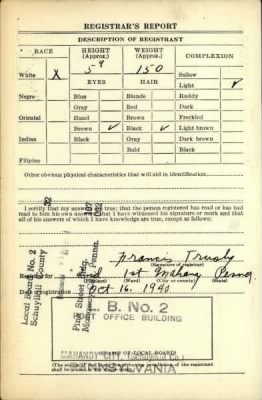 REGISTRAR'S REPORT
DESCRIPTION OF REGISTRANT
RACE HEIGHT (Approx.) WEIGHT (Approx.) COMPLEXION
White X 5 9 150 Sallow
EYES HAIR Light ✓
Negro Blue Blonde Ruddy
Gray Red Dark
Oriental Hazel Brown Freckled
Brown ✓ Black ✓ Light brown
Indian Black Gray Dark brown
Bald Black
Filipino
Other obvious physical characteristics that will aid in identification
I certify that my answers are true; that the person registered has read or has had
read to him his own answers; that I have witnessed his signature or mark and that
all of his answers of which I have knowledge are true, except as follows:
Local Board No. 2
Schuylkill County
(Signature of registrar)
Registrar for 1st Mahanoy Penna.
(Ward) (City or county) (State)
Date of registration Oct 16, 1940
L. B. No. 2
POST OFFICE BUILDING
MAHANOY CITY, (Schuylkill Co.)
(STAMP OF LOCAL BOARD)
PENNSYLVANIA